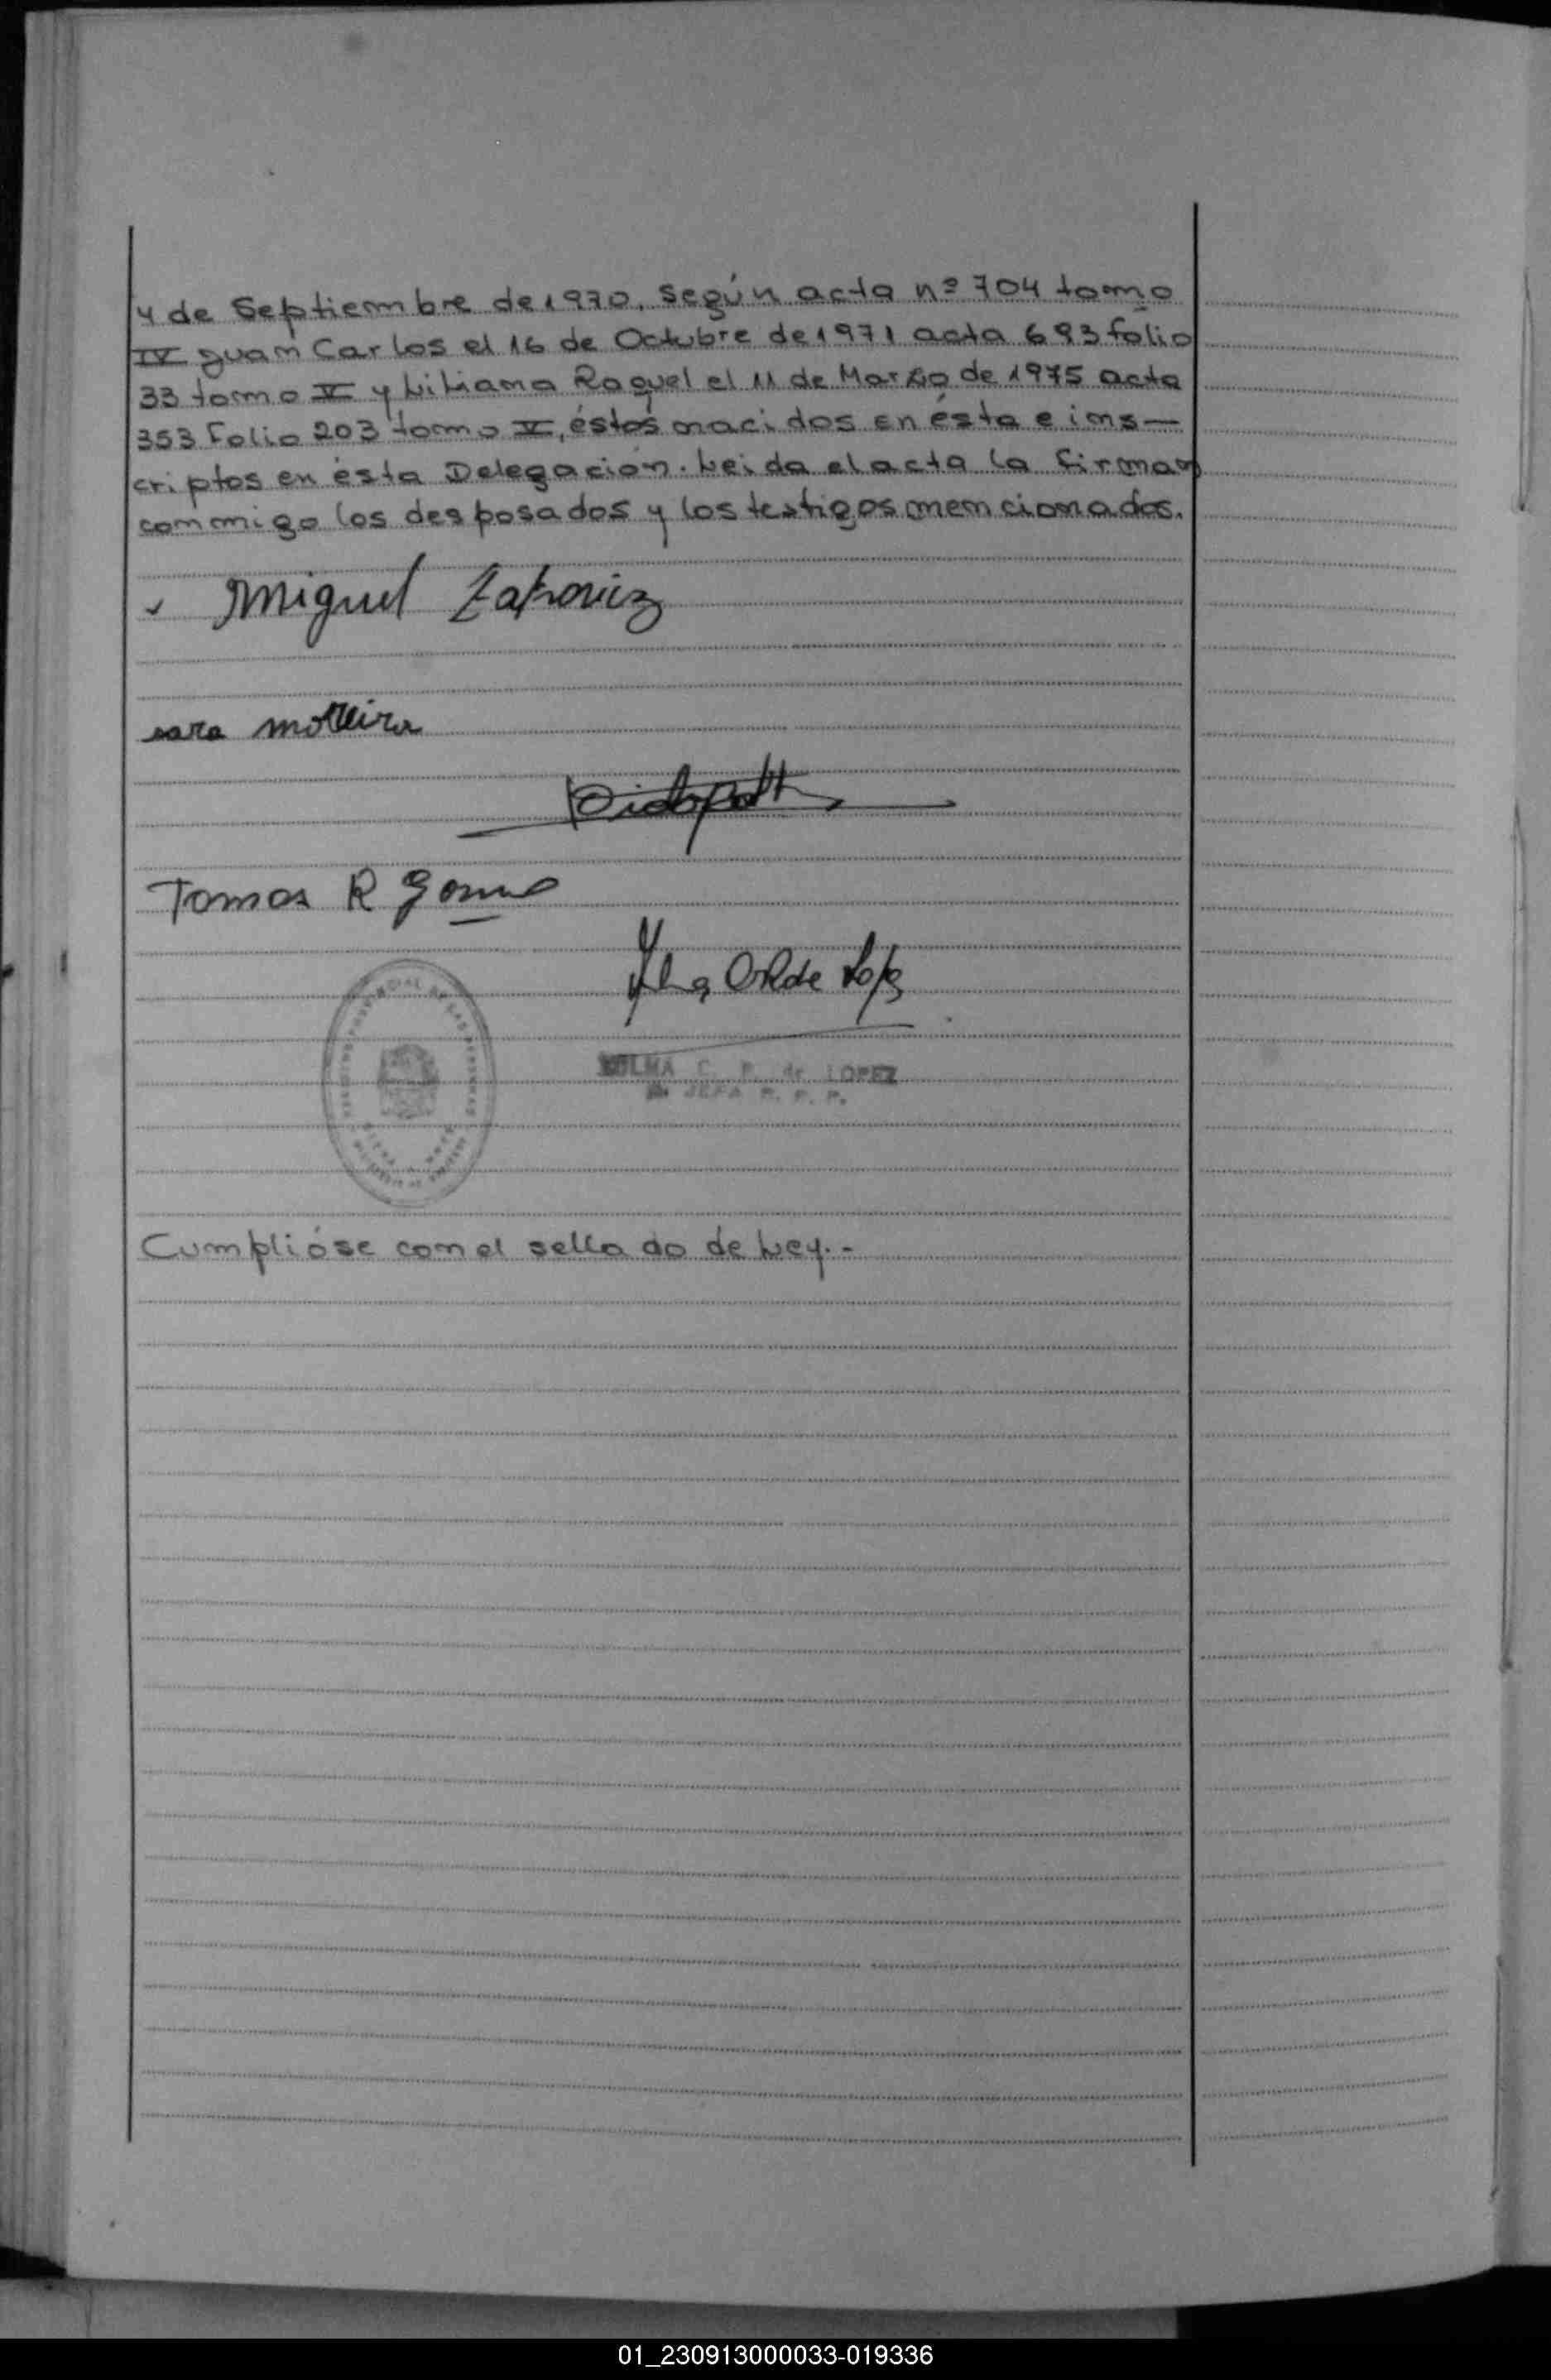 4 de Septiembre de 1970, según acta nº 704 tomo
IV Juan Carlos el 16 de Octubre de 1971 acta 693 folio
33 tomo V y Liliana Raquel el 11 de Marzo de 1975 acta
353 folio 203 tomo V, éstos nacidos en ésta e ins—
criptos en ésta Delegación. Leida el acta la firman
conmigo los desposados y los testigos mencionados.
Miguel
sara
Tomas R
LOPEZ
JEFA
Cumplióse con el sellado de Ley.-
01_230913000033-019336